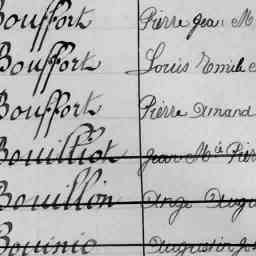 Bouffort Pierre Jean M
Bouffort Louis Emile
Bouffort Pierre Amand
Bouilliot Jean Mie Pier
Bouillon Ange Augu
Bouinio Augustin Jo